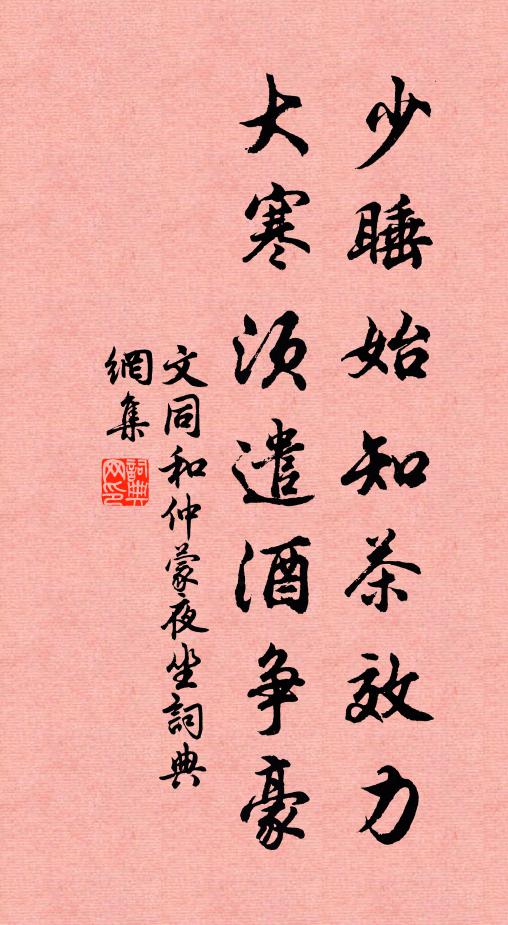 少睡始知茶效力
大寒須遣酒争豪
文同和仲蒙夜坐詞典
網集
詞典
网印